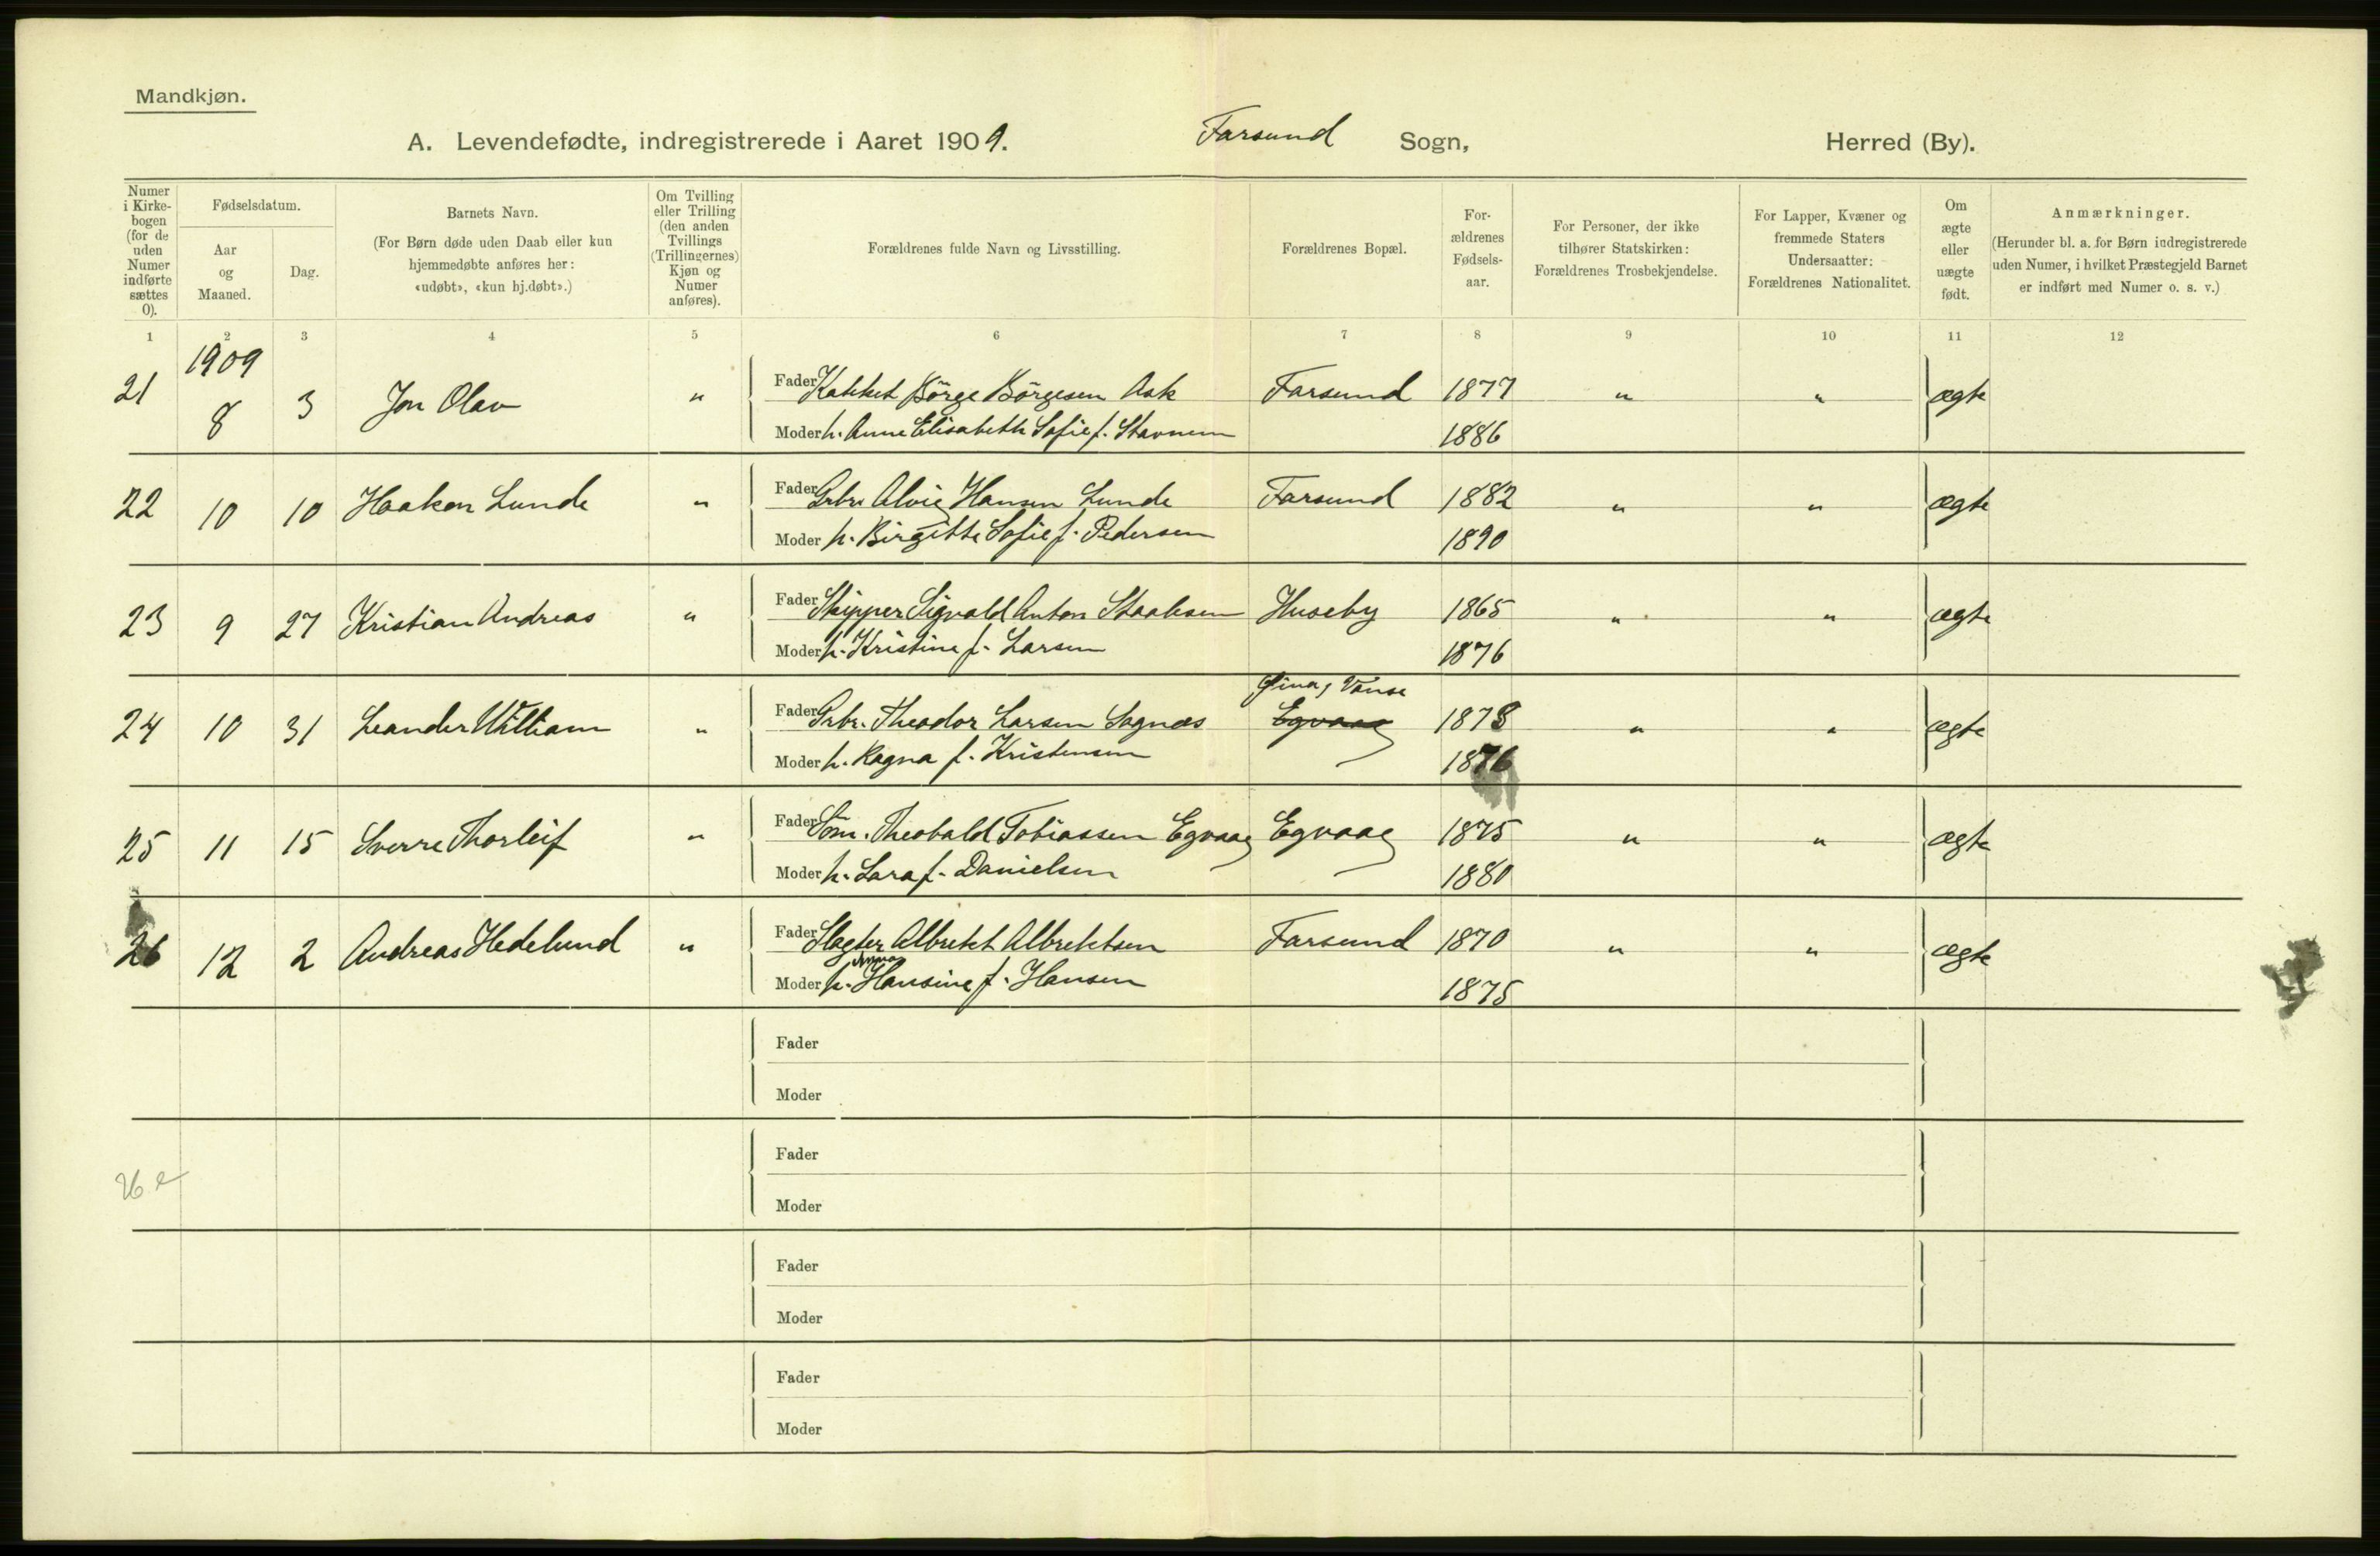 Mandkjøn.
A. Levendefødte, indregistrerede i Aaret 1909. Farsund Sogn, Herred (By).
Numer i Kirke-bogen (for de uden Numer indførte sættes 0).
Fødselsdatum.
Aar og Maaned.
Dag.
Barnets Navn.
(For Børn døde uden Daab eller kun hjemmedøbte anføres her: «udøbt», «kun hj.døbt».)
Om Tvilling eller Trilling (den anden Tvillings (Trillingernes) Kjøn og Numer anføres).
Forældrenes fulde Navn og Livsstilling.
Forældrenes Bopæl.
For-ældrenes Fødsels-aar.
For Personer, der ikke tilhører Statskirken: Forældrenes Trosbekjendelse.
For Lapper, Kvæner og fremmede Staters Undersaatter: Forældrenes Nationalitet.
Om ægte eller uægte født.
Anmærkninger.
(Herunder bl. a. for Børn indregistrerede uden Numer, i hvilket Præstegjeld Barnet er indført med Numer o. s. v.)
1 2 3 4 5 6 7 8 9 10 11 12
1909
21 8 3 Jon Olav " Fader Børge Børgesen Ask Farsund 1877 " " ægte
Moder h. Anne Elisabeth Sofie f. Stavnem 1886
22 10 10 Haakon Lunde " Fader Arbr. Alvie Hansen Lunde Farsund 1882 " " ægte
Moder h. Birgitte Sofie f. Pedersen 1890
23 9 27 Kristian Andreas " Fader Skipper Sigvald Anton Staalesen Huseby 1865 " " ægte
Moder h. Kristine f. Larsen 1876
Vanse
24 10 31 Leander William " Fader Arbr. Theodor Larsen Sognæs Egvaag 1878 " " ægte
Moder h. Ragna f. Kristensen 1876
25 11 15 Sverre Thorleif " Fader Søm. Theobald Tobiassen Egvaag Egvaag 1875 " " ægte
Moder h. Lara f. Danielsen 1880
26 12 2 Andreas Hedelund " Fader Slagter Albrekt Albrektsen Farsund 1870 " " ægte
Anna
Moder h. Hansine f. Hansen 1875
Fader
Moder
Fader
26
Moder
Fader
Moder
Fader
Moder